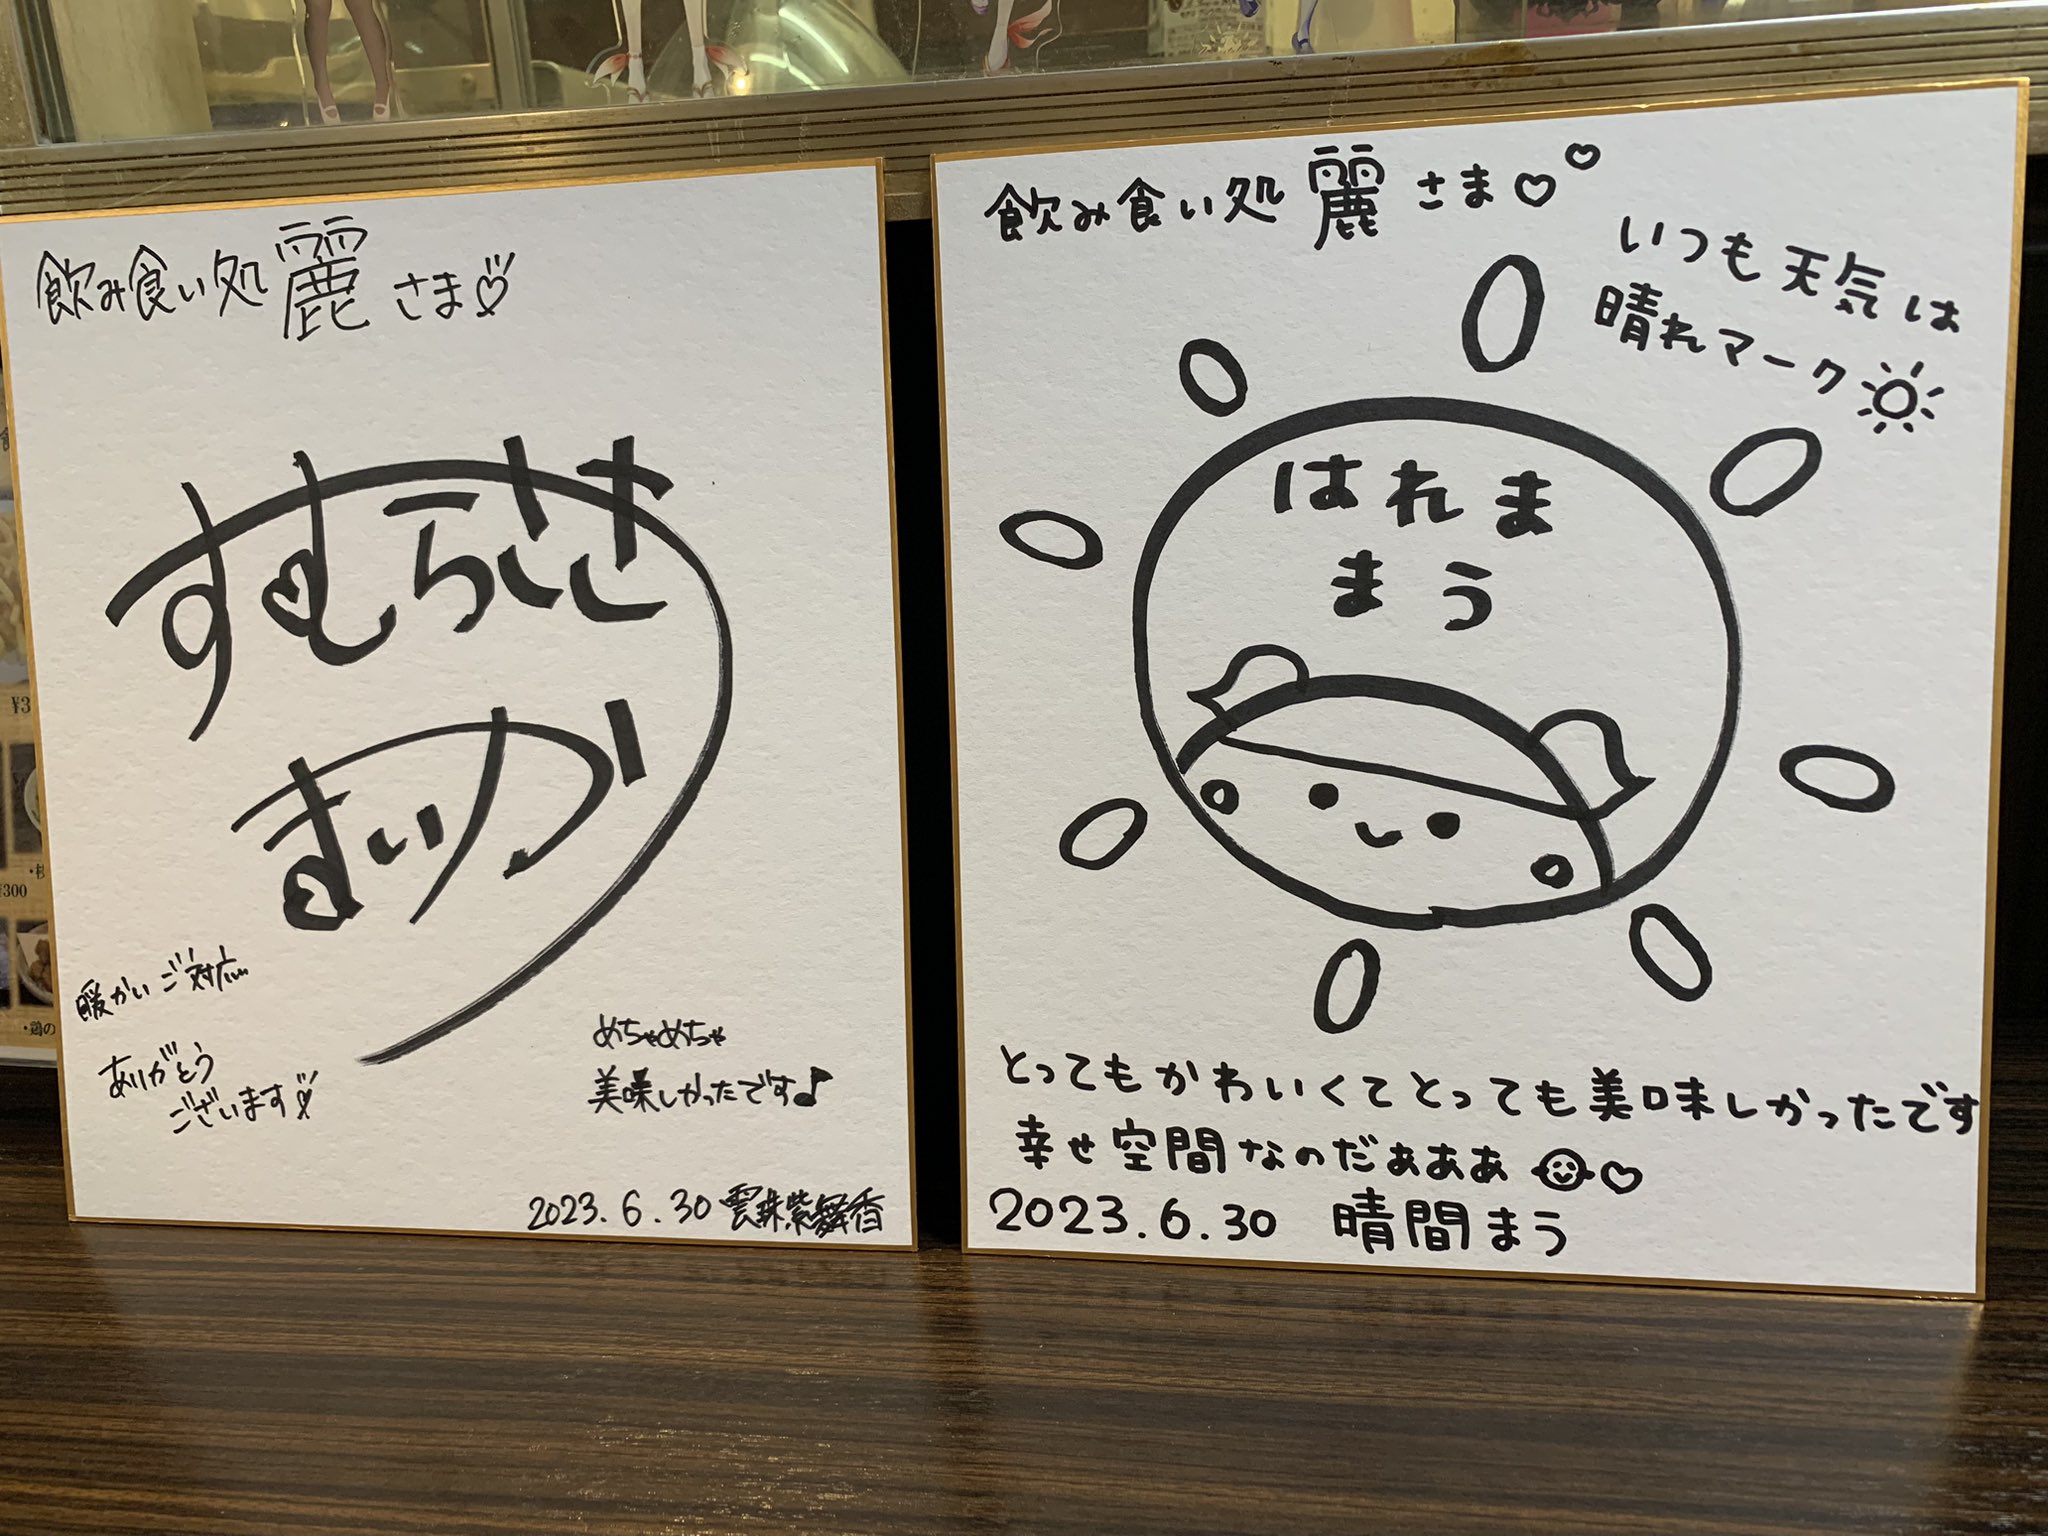 飲み食い処 麗 さま♡
すむらさき
まいか
暖かいご対応
ありがとう
ございます♡
めちゃめちゃ
美味しかったです♪
2023.6.30 雲珠紫舞香
飲み食い処 麗 さま♡♡
いつも天気は
晴れマーク☀
はれま
まう
とってもかわいくてとっても美味しかったです
幸せ空間なのだぁぁぁ♡
2023.6.30 晴間まう
¥300
・鶏の